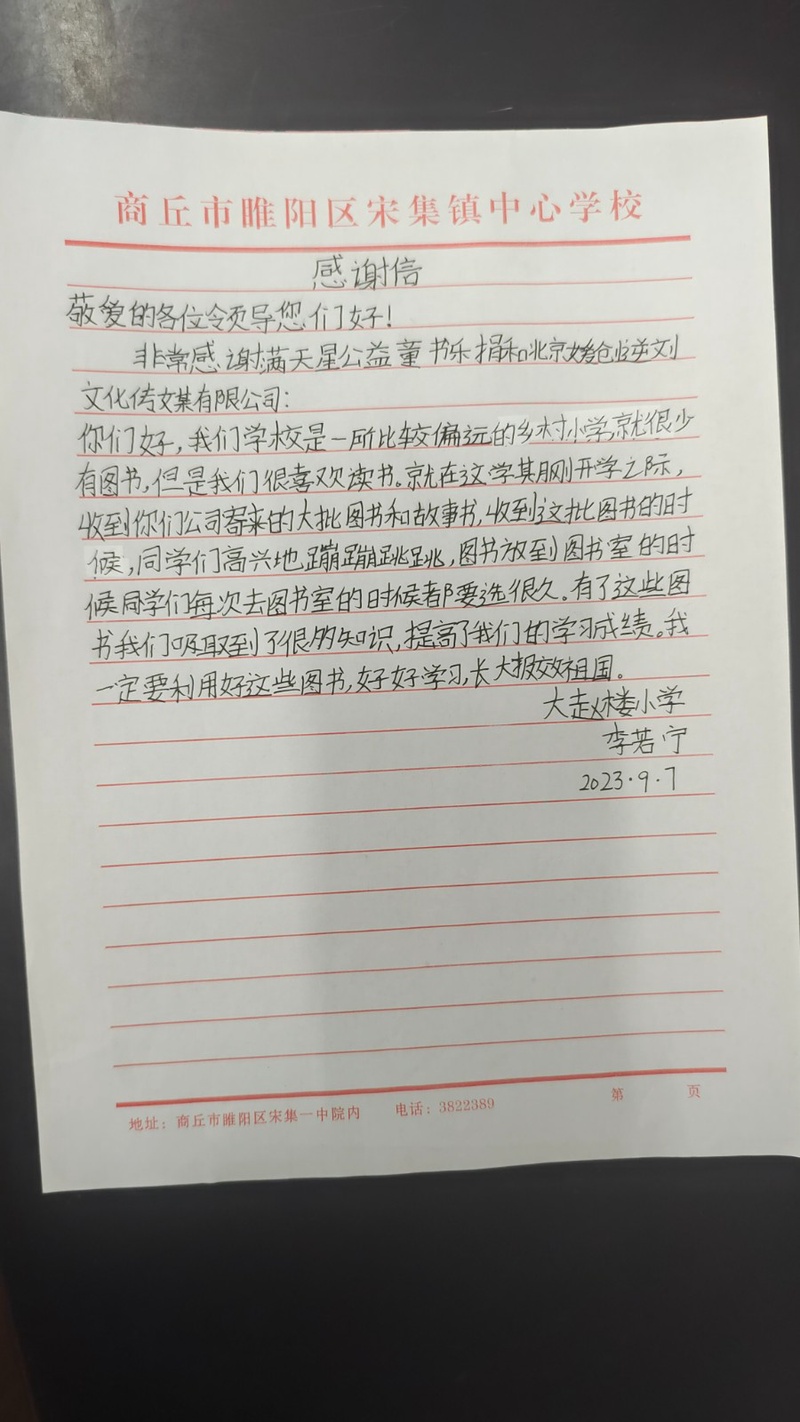 商丘市睢阳区宋集镇中心学校
感谢信
敬爱的各位令页导您们好！
非常感谢满天星公益童书乐捐和北京
文化传媒有限公司：
你们好，我们学校是一所比较偏远的乡村小学，就很少
有图书，但是我们很喜欢读书。就在这学期刚开学之际，
收到你们公司寄来的大批图书和故事书，收到这批图书的时
候，同学们高兴地蹦蹦跳跳，图书放到图书室的时
候同学们每次去图书室的时候都要选很久。有了这些图
书我们吸取到了很多知识，提高了我们的学习成绩。我
一定要利用好这些图书，好好学习，长大报效祖国。
大赵楼小学
李若宁
2023.9.7
地址：商丘市睢阳区宋集一中院内 电话：3822389 第 页